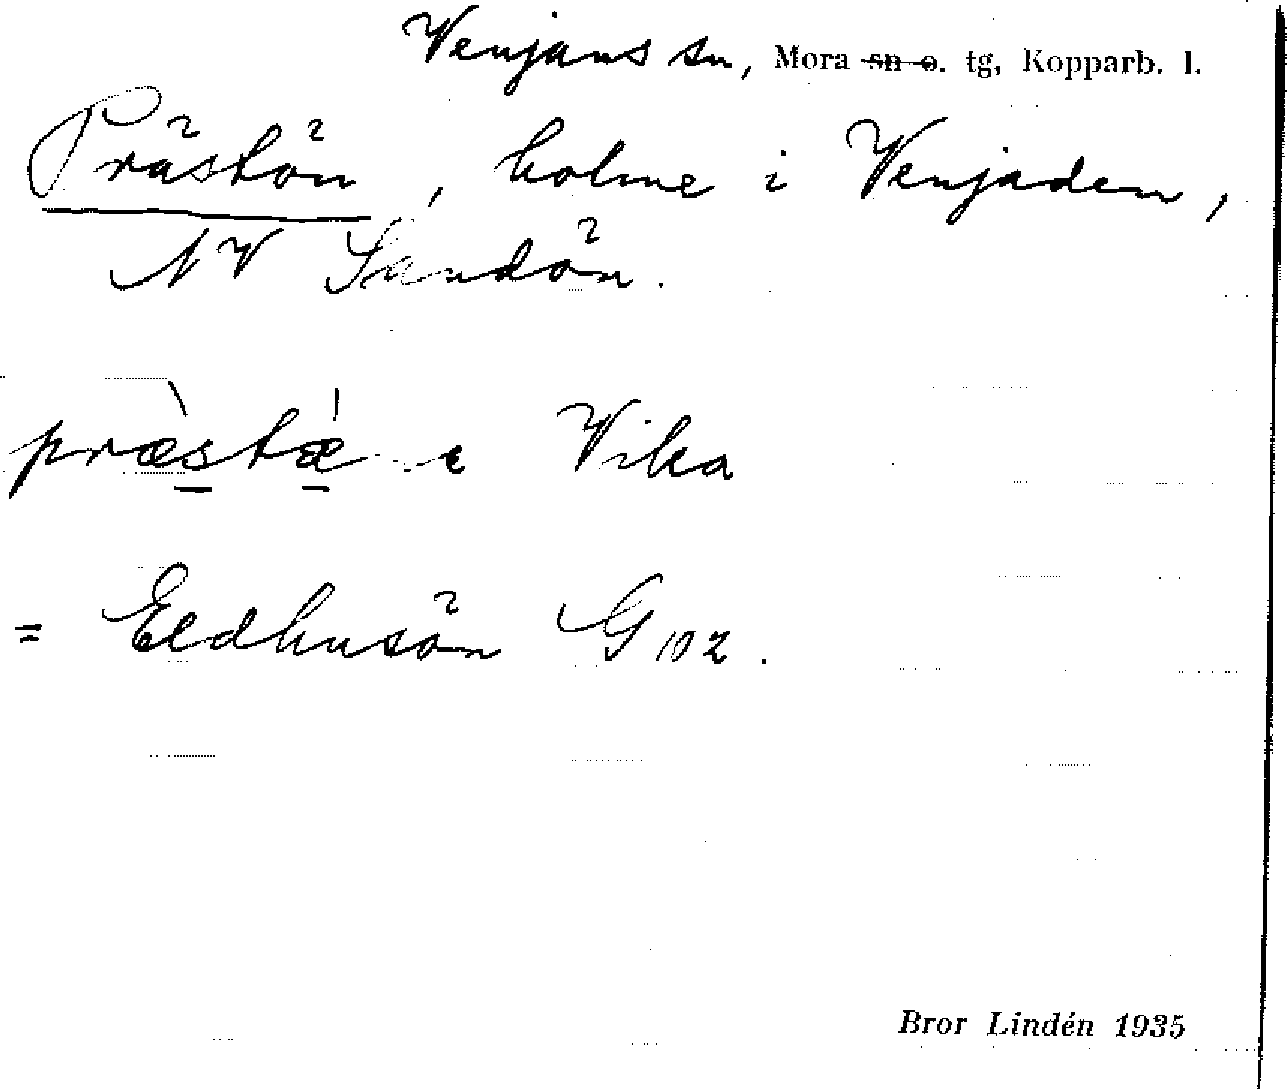 Venjans sn, Mora sn o. tg, Kopparb. l.
Prästön, holme i Venjaden,
NV Sandön.
præ̀stǽ Vika
= Eldhusön G 102.
Bror Lindén 1935